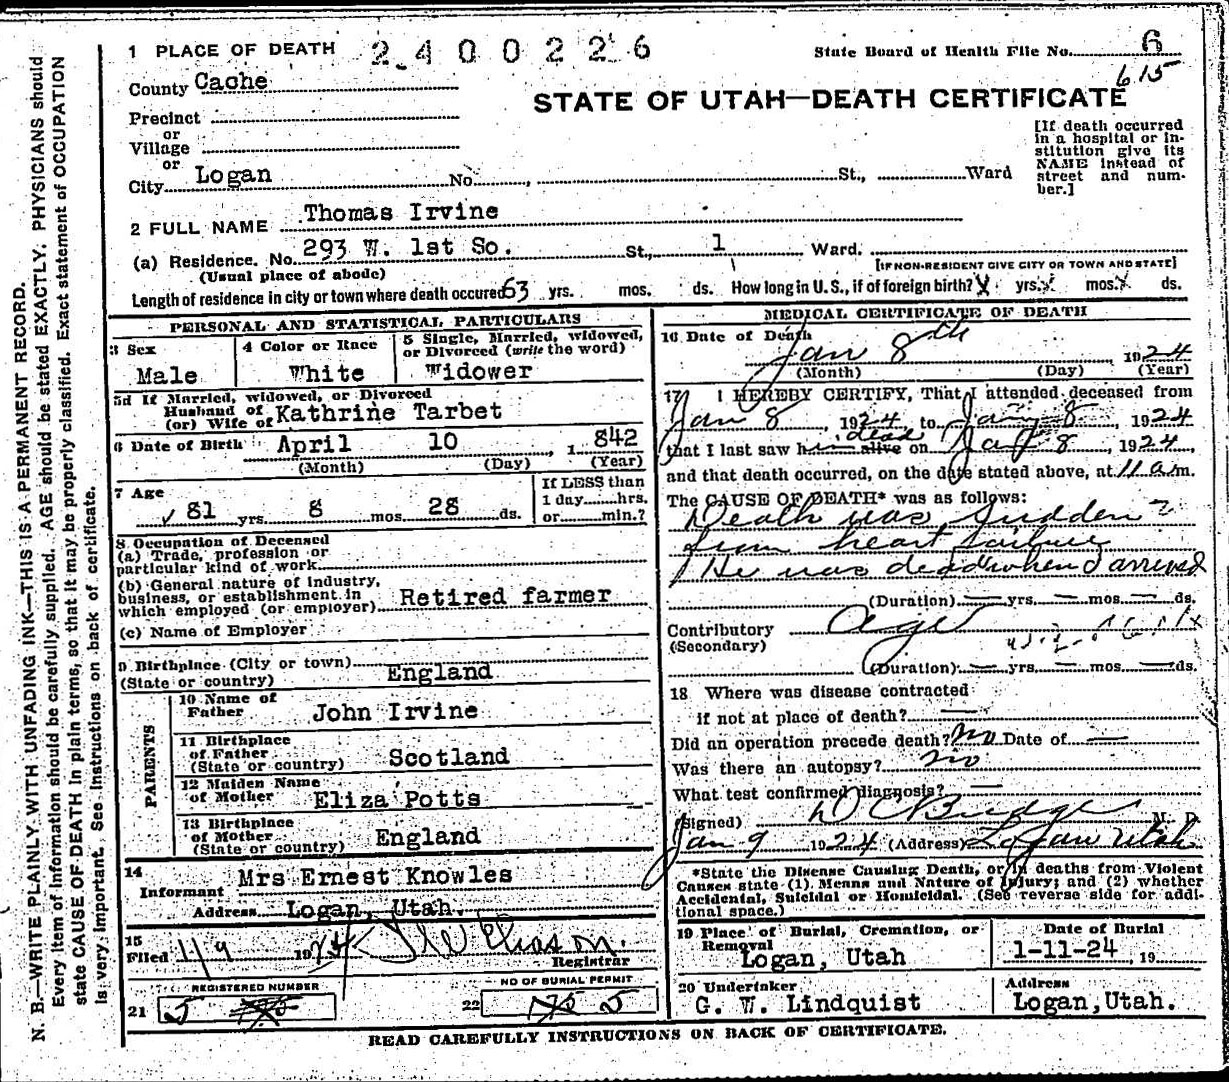 1 PLACE OF DEATH 2400226 State Board of Health File No. 6
615
County Cache
STATE OF UTAH—DEATH CERTIFICATE
Precinct
or
Village
or
City Logan No. , St., Ward
[If death occurred
in a hospital or in-
stitution give its
NAME instead of
street and num-
ber.]
2 FULL NAME Thomas Irvine
(a) Residence. No. 293 W. 1st So. St., 1 Ward.
(Usual place of abode) [IF NON-RESIDENT GIVE CITY OR TOWN AND STATE]
Length of residence in city or town where death occured 63 yrs. mos. ds. How long in U. S., if of foreign birth? yrs. mos. ds.
PERSONAL AND STATISTICAL PARTICULARS
3 Sex
Male
4 Color or Race
White
5 Single, Married, widowed,
or Divorced (write the word)
Widower
5d If Married, widowed, or Divorced
Husband of
(or) Wife of Kathrine Tarbet
6 Date of Birth April 10 , 1 842
(Month) (Day) (Year)
7 Age
81 yrs. 8 mos. 28 ds.
If LESS than
1 day hrs.
or min.?
8 Occupation of Deceased
(a) Trade, profession or
particular kind of work
(b) General nature of Industry,
business, or establishment in
which employed (or employer) Retired farmer
(c) Name of Employer
9 Birthplace (City or town)
(State or country) England
PARENTS
10 Name of
Father John Irvine
11 Birthplace
of Father
(State or country) Scotland
12 Maiden Name
of Mother Eliza Potts
13 Birthplace
of Mother
(State or country) England
14
Informant Mrs Ernest Knowles
Address Logan, Utah.
15
Filed 1/9 1924
Registrar
REGISTERED NUMBER
21 5
NO OF BURIAL PERMIT
22 5
MEDICAL CERTIFICATE OF DEATH
16 Date of Death
Jan 8th 1924
(Month) (Day) (Year)
17 I HEREBY CERTIFY, That I attended deceased from
Jan 8, 1924 to Jan 8, 1924
that I last saw him alive dead on Jan 8, 1924,
and that death occurred, on the date stated above, at 11 a m.
The CAUSE OF DEATH* was as follows:
Death was sudden
from heart failure
He was dead when I arrived
(Duration) — yrs. — mos. — ds.
Contributory Age
(Secondary)
(Duration) — yrs. — mos. — ds.
18 Where was disease contracted
if not at place of death? —
Did an operation precede death? no Date of —
Was there an autopsy? no
What test confirmed diagnosis? —
(Signed) D C Budge M. D.
Jan 9 1924 (Address) Logan Utah
*State the Disease Causing Death, or in deaths from Violent
Causes state (1) Means and Nature of Injury; and (2) whether
Accidental, Suicidal or Homicidal. (See reverse side for addi-
tional space.)
19 Place of Burial, Cremation, or
Removal
Logan, Utah
Date of Burial
1-11-24 , 19
20 Undertaker
G. W. Lindquist
Address
Logan,Utah.
READ CAREFULLY INSTRUCTIONS ON BACK OF CERTIFICATE.
N. B.—WRITE PLAINLY WITH UNFADING INK—THIS IS A PERMANENT RECORD.
Every item of information should be carefully supplied. AGE should be stated EXACTLY. PHYSICIANS should
state CAUSE OF DEATH in plain terms, so that it may be properly classified. Exact statement of OCCUPATION
is very important. See instructions on back of certificate.